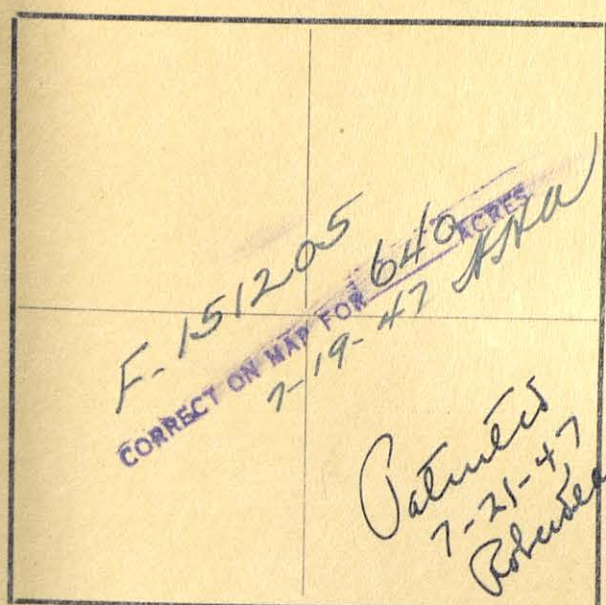 F-151205
CORRECT ON MAP FOR 640 ACRES
7-19-47
Patented
7-21-47